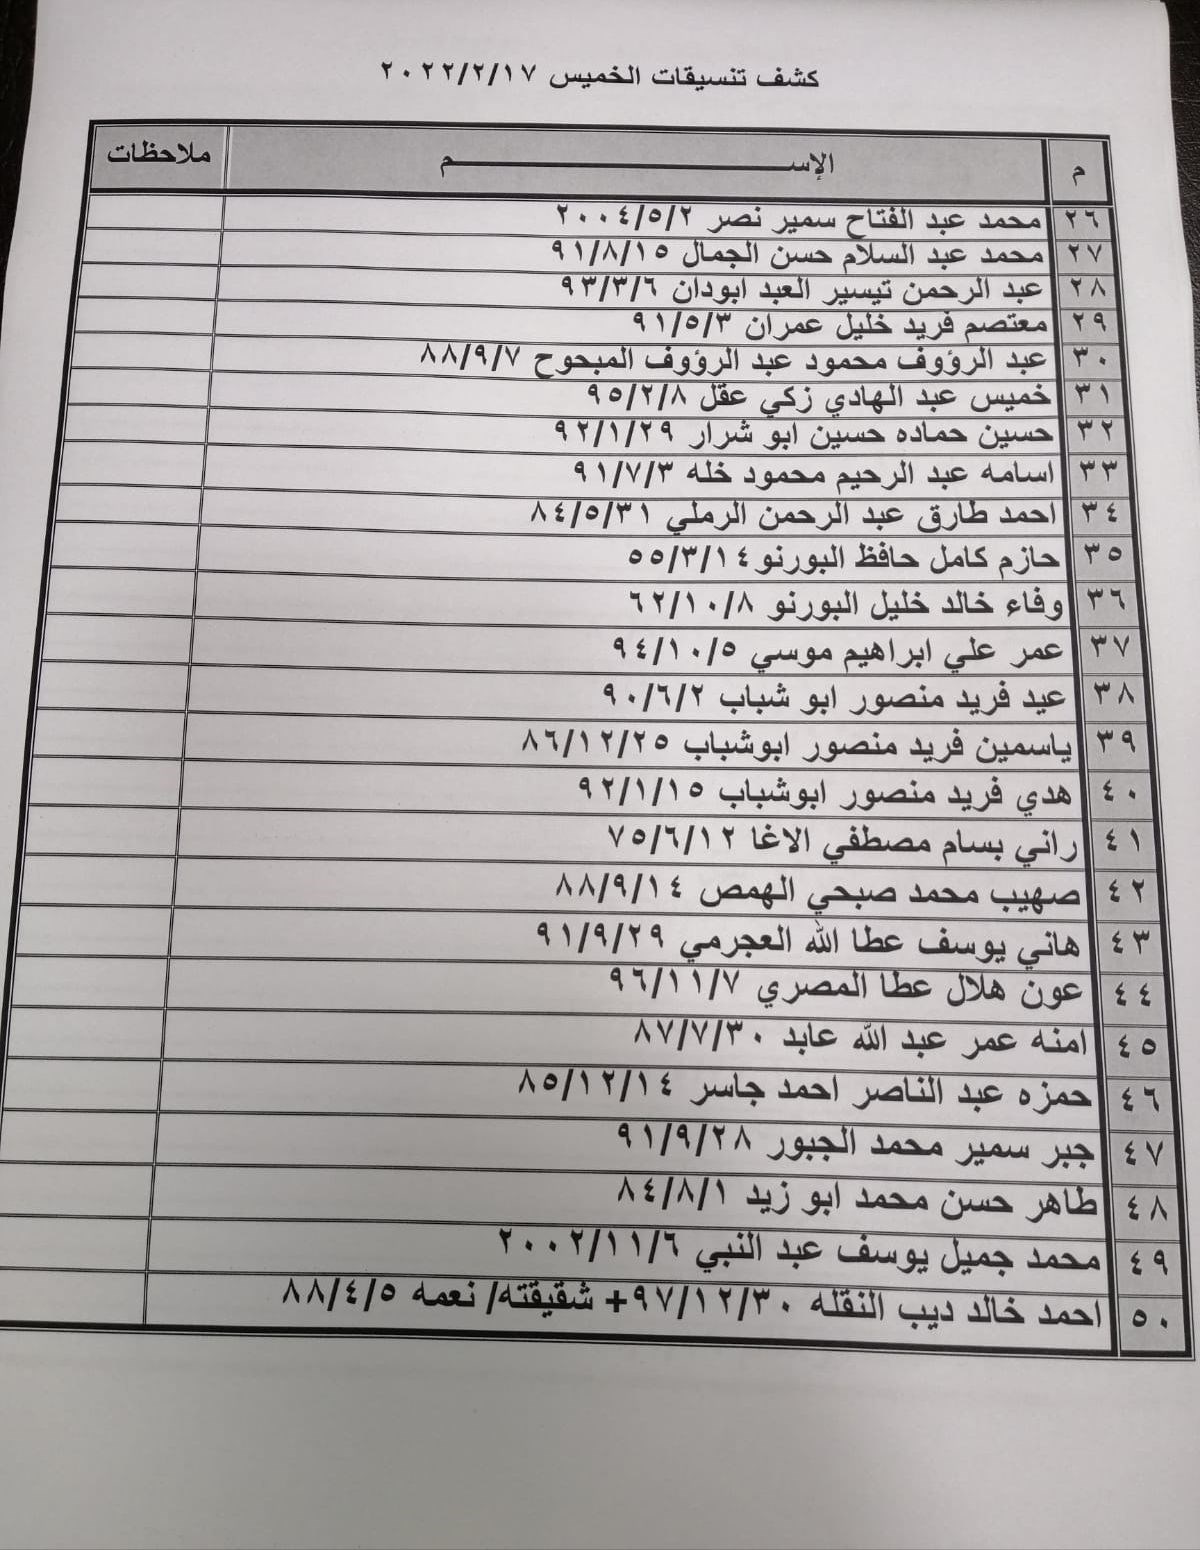 كشف تنسيقات الخميس ٢٠٢٢/٢/١٧
م الإســـــــــم ملاحظات
٢٦ محمد عبد الفتاح سمير نصر ٢٠٠٤/٥/٢
٢٧ محمد عبد السلام حسن الجمال ٩١/٨/١٥
٢٨ عبد الرحمن تيسير العبد ابودان ٩٣/٣/٦
٢٩ معتصم فريد خليل عمران ٩١/٥/٣
٣٠ عبد الرؤوف محمود عبد الرؤوف المبحوح ٨٨/٩/٧
٣١ خميس عبد الهادي زكي عقل ٩٥/٢/٨
٣٢ حسين حماده حسين ابو شرار ٩٢/١/٢٩
٣٣ اسامه عبد الرحيم محمود خله ٩١/٧/٣
٣٤ احمد طارق عبد الرحمن الرملي ٨٤/٥/٣١
٣٥ حازم كامل حافظ البورنو ٥٥/٣/١٤
٣٦ وفاء خالد خليل البورنو ٦٢/١٠/٨
٣٧ عمر علي ابراهيم موسي ٩٤/١٠/٥
٣٨ عيد فريد منصور ابو شباب ٩٠/٦/٢
٣٩ ياسمين فريد منصور ابوشباب ٨٦/١٢/٢٥
٤٠ هدي فريد منصور ابوشباب ٩٢/١/١٥
٤١ راني بسام مصطفي الاغا ٧٥/٦/١٢
٤٢ صهيب محمد صبحي الهمص ٨٨/٩/١٤
٤٣ هاني يوسف عطا الله العجرمي ٩١/٩/٢٩
٤٤ عون هلال عطا المصري ٩٦/١١/٧
٤٥ امنه عمر عبد الله عابد ٨٧/٧/٣٠
٤٦ حمزه عبد الناصر احمد جاسر ٨٥/١٢/١٤
٤٧ جبر سمير محمد الجبور ٩١/٩/٢٨
٤٨ طاهر حسن محمد ابو زيد ٨٤/٨/١
٤٩ محمد جميل يوسف عبد النبي ٢٠٠٢/١١/٦
٥٠ احمد خالد ديب النقله ٩٧/١٢/٣٠+ شقيقته/ نعمه ٨٨/٤/٥